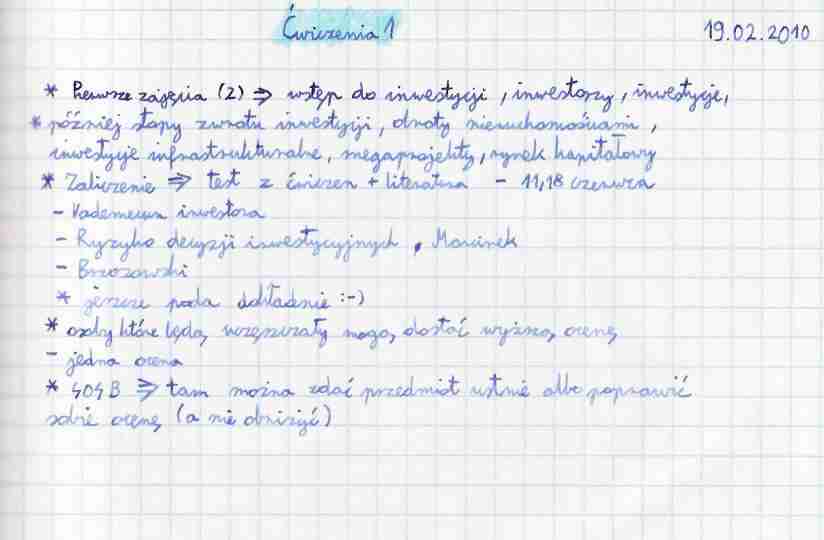 Ćwiczenia 1 19.02.2010
* Pierwsze zajęcia (2) ⇒ wstęp do inwestycji, inwestorzy, inwestycje,
* później stopy zwrotu inwestycji, obroty nieruchomościami,
inwestycje infrastrukturalne, megaprojekty, rynek kapitałowy
* Zaliczenie ⇒ test z ćwiczeń + literatura - 11,18 czerwca
- Vademecum inwestora
- Ryzyko decyzji inwestycyjnych, Marcinek
- Brzozowski
* jeszcze poda dokładnie :-)
* osoby które będą uczęszczały mogą dostać wyższą ocenę
- jedna ocena
* 404 B ⇒ tam można zdać przedmiot ustnie albo poprawić
sobie ocenę (a nie obniżyć)